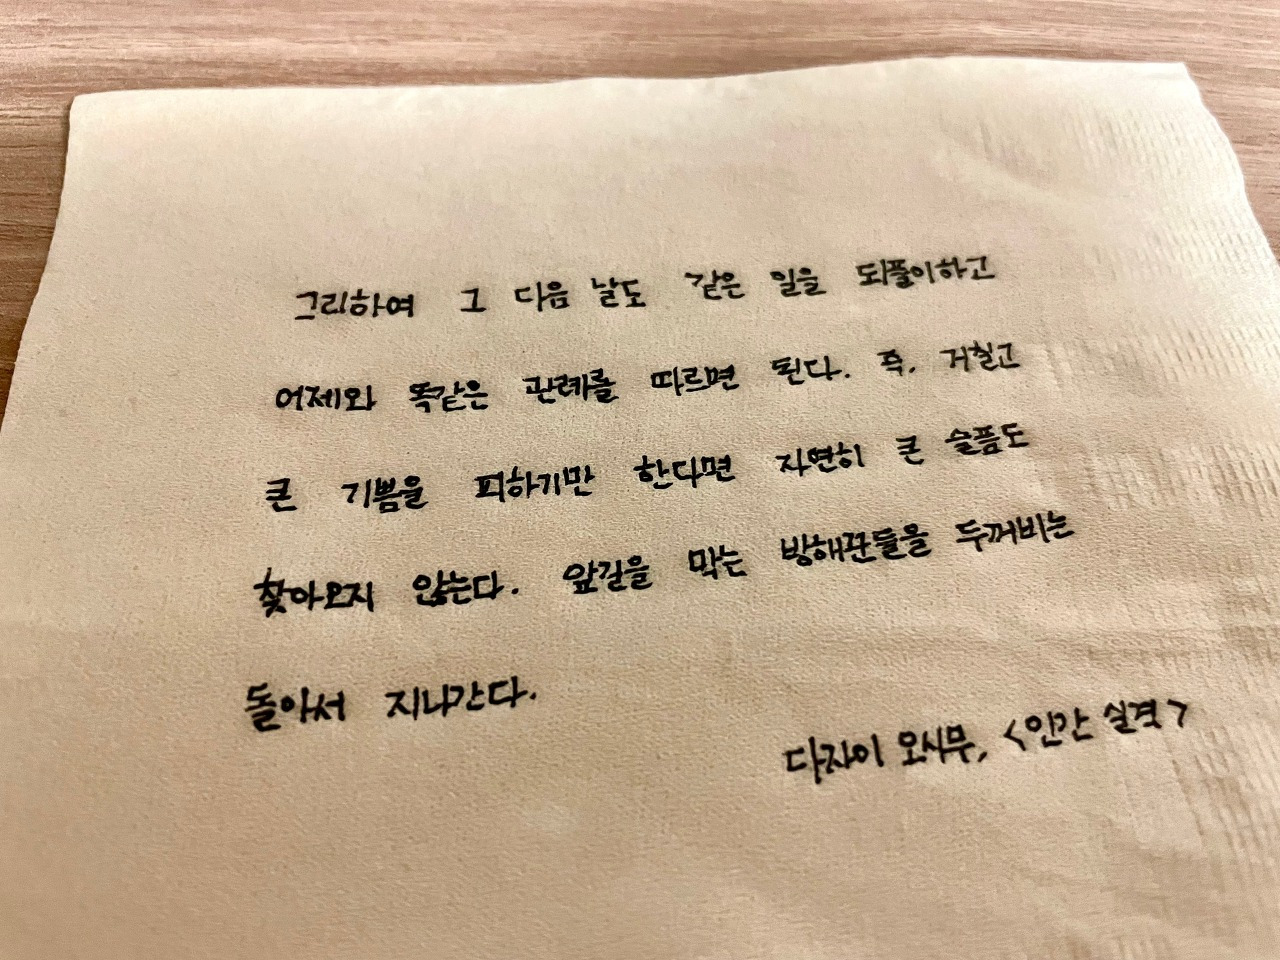 그리하여 그 다음 날도 같은 일을 되풀이하고
어제와 똑같은 관례를 따르면 된다. 즉, 거칠고
큰 기쁨을 피하기만 한다면 자연히 큰 슬픔도
찾아오지 않는다. 앞길을 막는 방해꾼들을 두꺼비는
돌아서 지나간다.
다자이 오사무, <인간 실격>